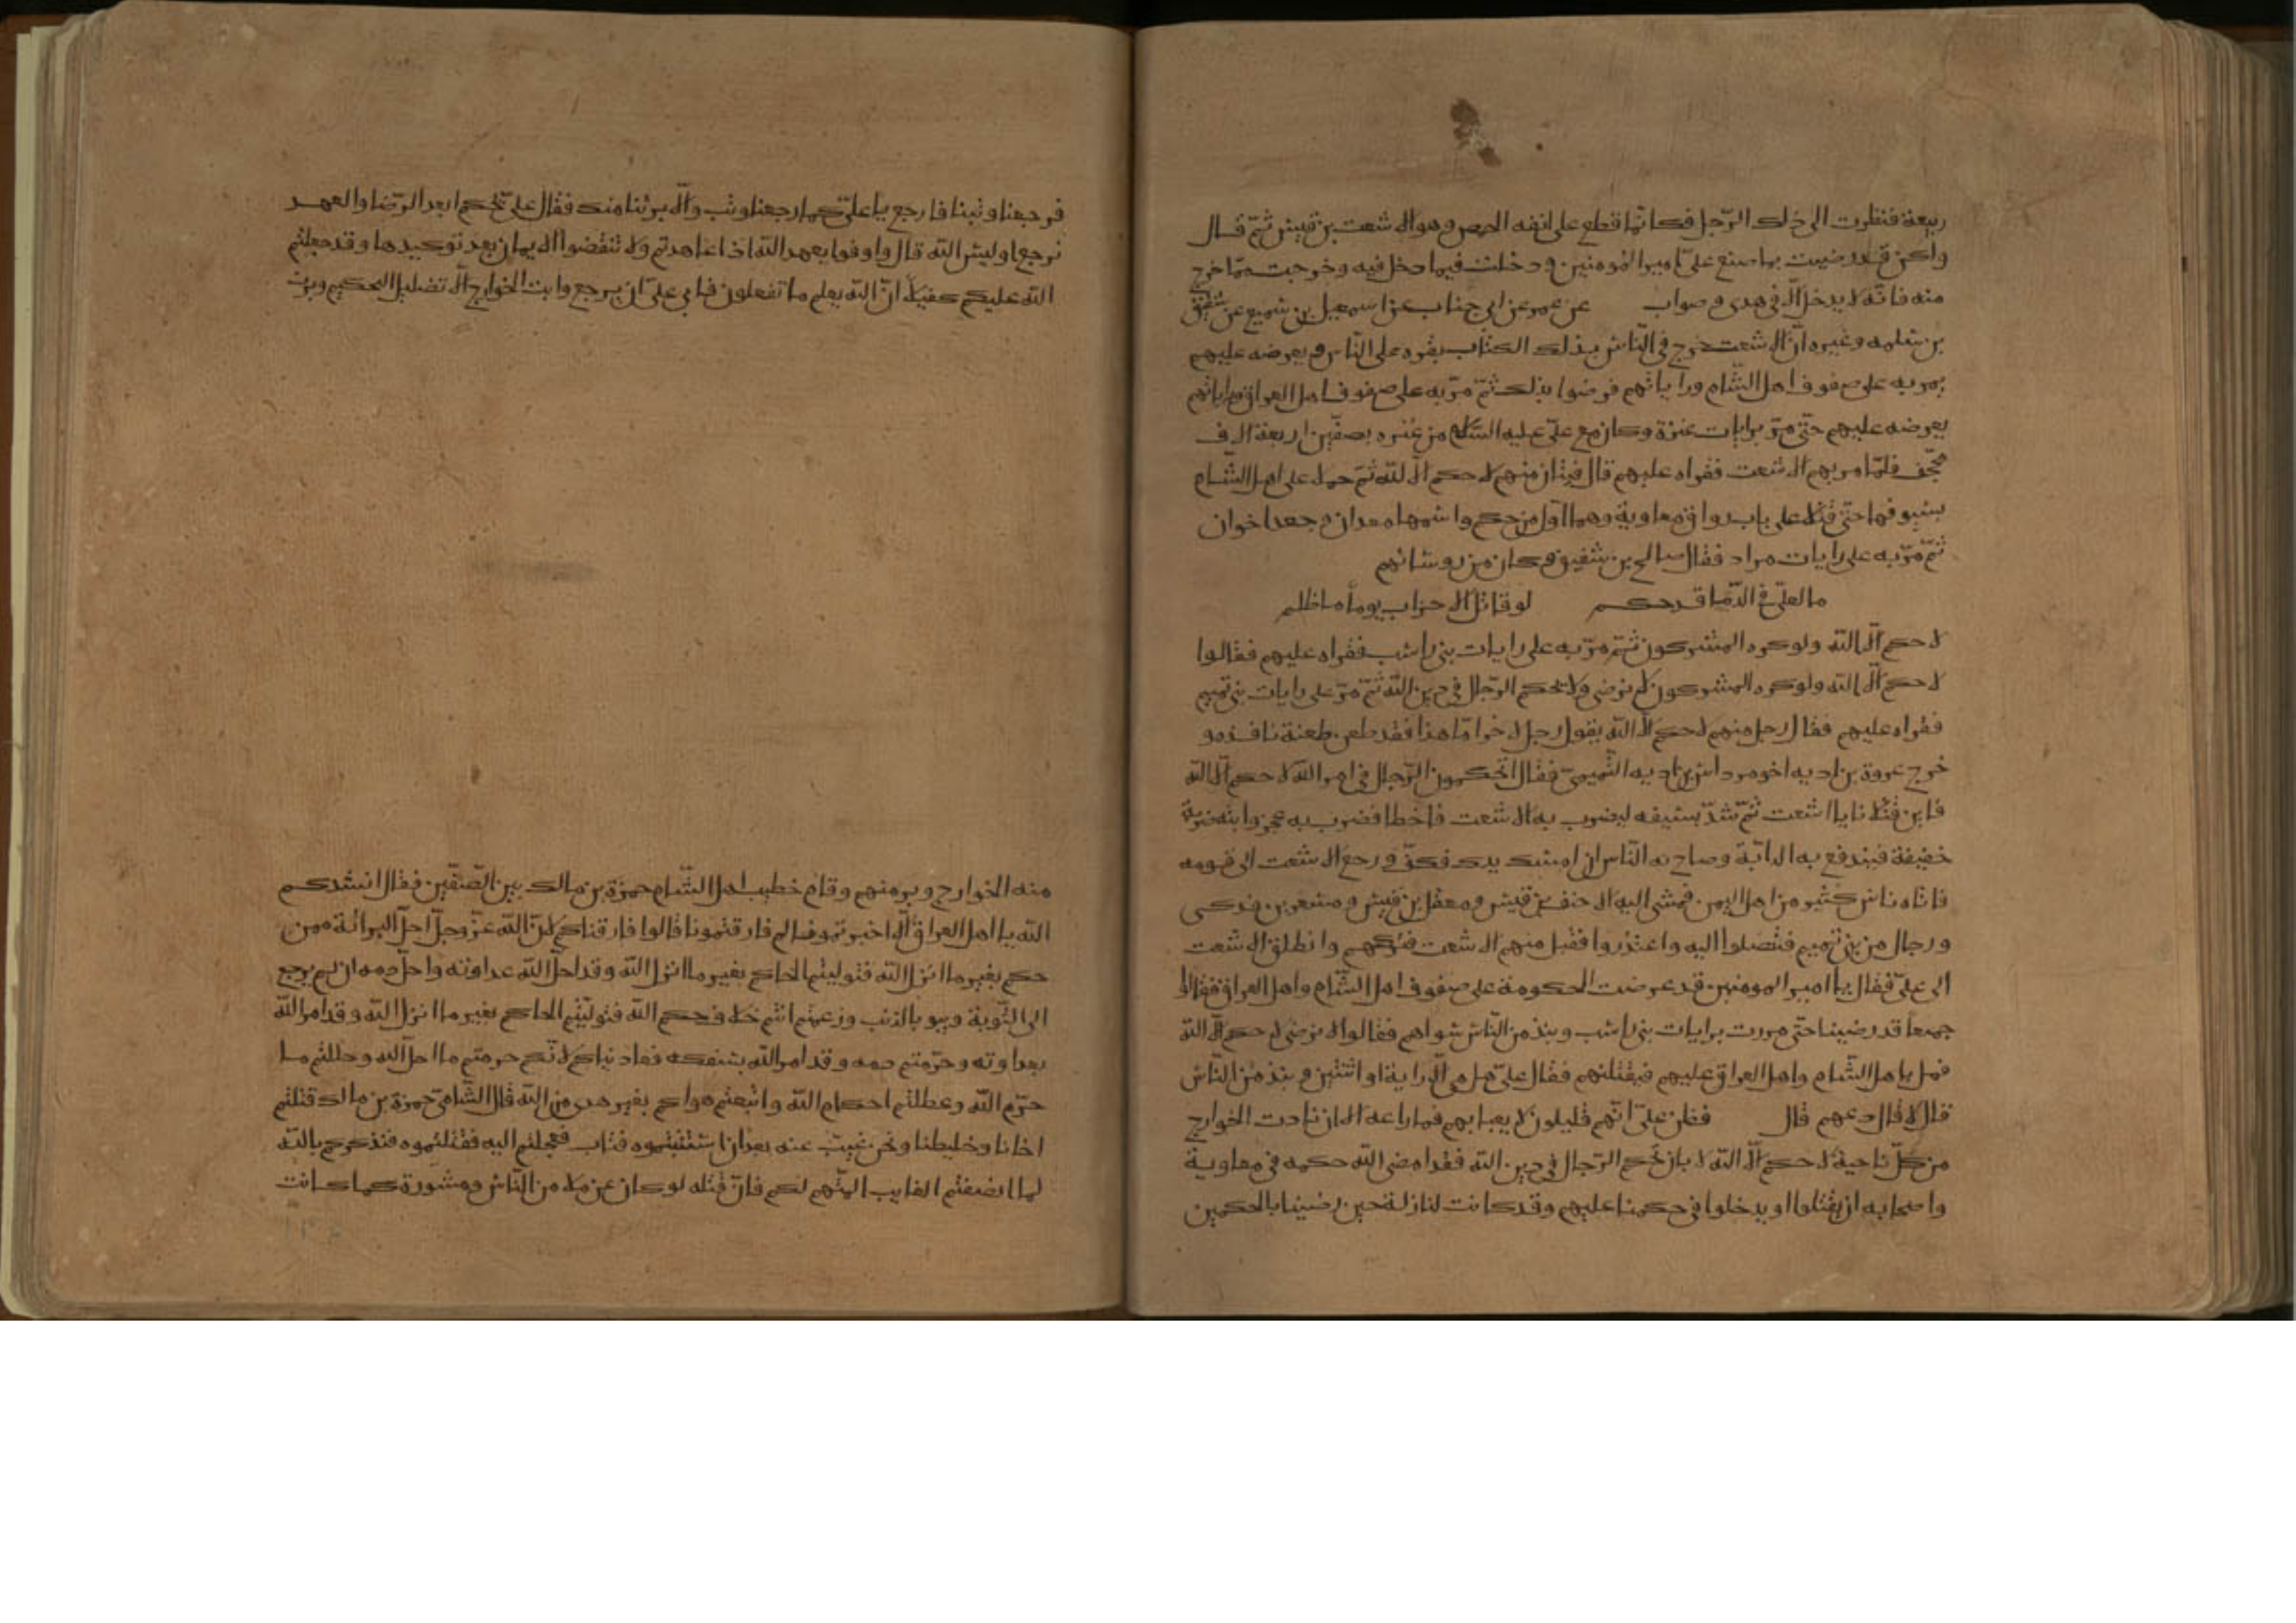 ربيعة فنظرت الى ذلك الرّجل فكانّما قطع على انفه الحمص وهو الاشعث بن قيس ثمّ قال
ولكن قد رضيت بما صنع علىّ امير المؤمنين و دخلت فيما دخل فيه وخرجت ممّا خرج
منه فانّه لا يدخل الّا فى هدى وصواب عن عمر عن ابى جناب عن اسمعيل بن سميع عن شقيق
بن سلمه وغيره انّ الاشعث خرج فى النّاس بذلك الكتاب يقره على النّاس ويعرضه عليهم
يمر به على صفوف اهل الشّام وراياتهم فرضوا بذلك ثمّ مرّ به على صفوف اهل العراق وراياتهم
يعرضه عليهم حتّى مرّ برايات عنزة وكان مع علىّ عليه السّلام من عنزه بصفّين اربعة الاف
مجّفف فلمّا مر بهم الاشعث فقراه عليهم قال فتيان منهم لا حكم الّا للّه ثمّ حملا على اهل الشّام
بسيوفهما حتّى قتلا على باب رواق معاوية وهما اوّل من حكم واسمهما معدان وجعد اخوان
ثمّ مرّ به على رايات مراد فقال صالح بن شقيق وكان من روسائهم
ما لعلىّ فى الدّما قد حكم لو قاتل الاحزاب يوماً ما ظلم
لا حكم الّا للّه ولو كره المشركون ثمّ مرّ به على رايات بنى راسب فقراه عليهم فقالوا
لا حكم الّا للّه ولو كره المشركون لا نرضى ولا نحكم الرّجال فى دين اللّه ثمّ مرّ على رايات بنى تميم
فقراه عليهم فقال رجل منهم لا حكم الّا للّه يقول رجل لاخر امّا هذا فقد طعن طعنة نافذه و
خرج عروة بن اديه اخو مرداس بن اديه التّميمىّ فقال اتحكمون الرّجال فى امر اللّه لا حكم الّا للّه
فاين قتلانا يا اشعث ثمّ شدّ بسيفه ليضرب به الاشعث فاخطا فضرب به عجز دابته ضربة
خفيفة فيندفع به الدابّة وصاح به النّاس ان امسك يدك فكفّ ورجع الاشعث الى قومه
فاتاه ناس كثير من اهل اليمن فمشى اليه الاحنف بن قيس ومعقل بن قيس ومسعر بن فدكى
ورجال من بنى تميم فتنصلوا اليه واعتذروا فقبل منهم الاشعث فتركهم وانطلق الاشعث
الى علىّ فقال يا امير المومنين قد عرضت الحكومة على صفوف اهل الشّام واهل العراق فقالوا
جميعاً قد رضينا حتّى مررت برايات بنى راسب ونبذ من النّاس سواهم فقالوا لا نرضى لا حكم الّا للّه
فمل باهل الشّام واهل العراق عليهم فيقتلنهم فقال علىّ هل هى الّا راية او اثنتين ونبذ من النّاس
قال لا قال دعهم قال فظن علىّ انّهم قليلون لا يعبا بهم فما راعه الا ان نادت الخوارج
من كلّ ناحية لا حكم الّا للّه لا بان نحكم الرّجال فى دين اللّه فقد امضى اللّه حكمه فى معاوية
واصحابه ان يقتلوا او يدخلوا فى حكمنا عليهم وقد كانت لنا زلة حين رضينا بالحكمين
فرجعنا و تبنا فارجع يا علىّ كما رجعنا وتب والّا برئنا منك فقال علىّ ويحكم ابعد الرّضا والعهد
نرجع او ليس اللّه قال واوفوا بعهد اللّه اذا عاهدتم ولا تنقضوا الايمان بعد توكيدها وقد جعلتم
اللّه عليكم كفيلًا انّ اللّه يعلم ما تفعلون فابى علىّ ان يرجع وابت الخوارج الّا تضليل التحكيم وبرئت
منه الخوارج وبر منهم وقام خطيب اهل الشّام حمزة بن مالك بين الصّفّين فقال انشدكم
اللّه يا اهل العراق الّا اخبرتمونا لم فارقتمونا قالوا فارقناكم لانّ اللّه عزّ وجلّ احلّ البرائة ممن
حكم بغير ما انزل اللّه فتوليتم الحاكم بغير ما انزل اللّه وقد احلّ اللّه عداوته واحلّ دمه ان لم يرجع
الى التّوبة ويبو بالذنب وزعمتم انتم خلاف حكم اللّه فتولّيتم الحاكم بغير ما انزل اللّه وقد امر اللّه
بعداوته وحرّمتم دمه وقد امر اللّه بسفكه فعاديناكم لانّكم حرمتم ما احلّ اللّه وحللتم ما
حرّم اللّه وعطلتم احكام اللّه واتبعتم هواكم بغير هدى من اللّه قال الشّامىّ حمزة بن مالك قتلتم
اخانا وخليطنا ونحن غيب عنه بعد ان استتبتموه فتاب فعجلتم اليه فقتلتموه فنذكركم باللّه
لما انصفتم الغايب المتّهم لكم فانّ قتله لو كان عن ملا من النّاس ومشورة كما كانت